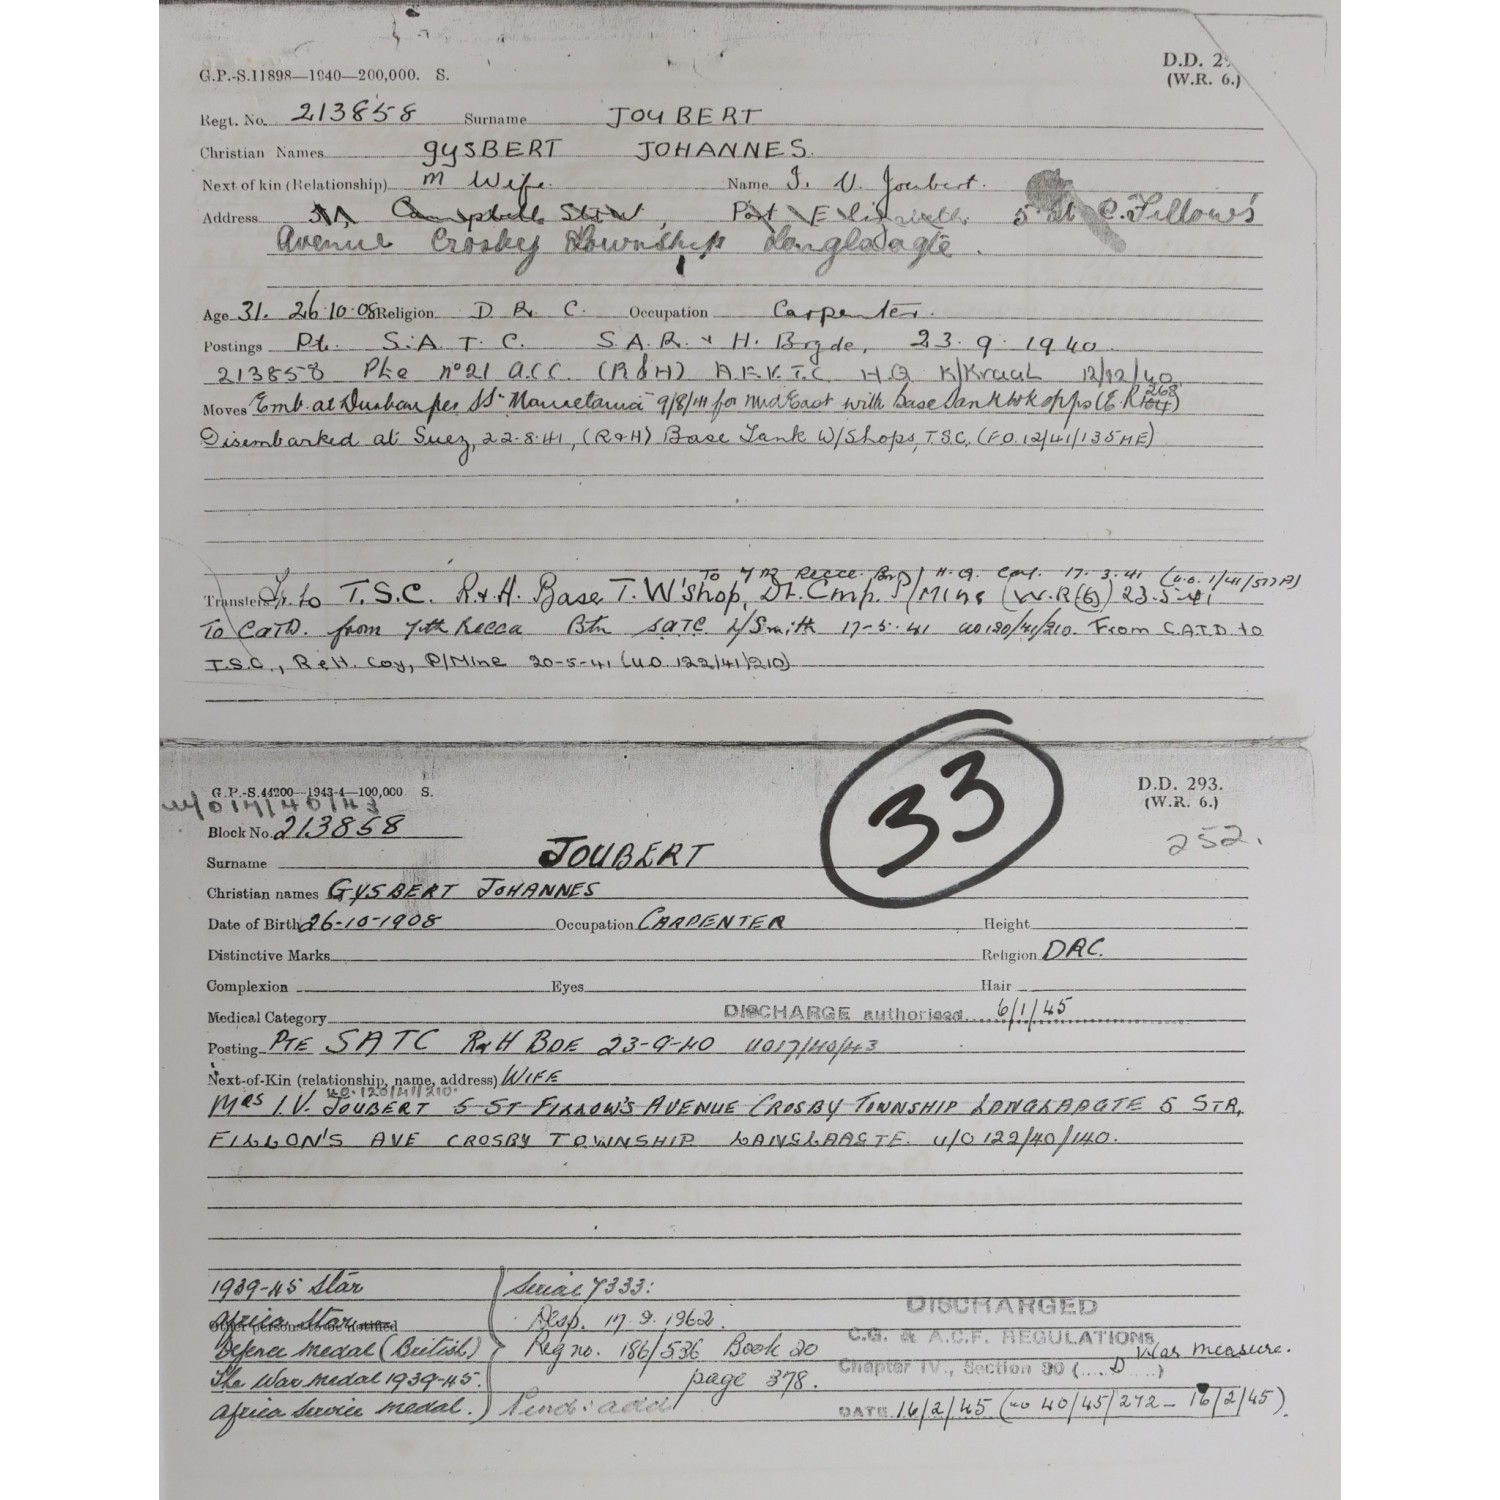 G.P.-S.11898—1940—200,000. S.
D.D. 29
(W.R. 6.)
Regt. No. 213858 Surname JOUBERT
Christian Names GYSBERT JOHANNES.
Next of kin (Relationship) M Wife. Name I. V. Joubert.
Address Campbell Street, Port Elizabeth. 5 St C. Fillow's
Avenue Crosby Township Langlaagte.
Age 31. 26·10·08 Religion D. R. C. Occupation Carpenter.
Postings Pt. S.A.T.C. S.A.R. + H. Brgde, 23.9.1940.
213858 Pte No 21 A.C.C. (R&H) A.F.V.T.C. H.Q K/Kraal 12/12/40
Moves Emb. at Durban per SS "Mauretania" 9/8/41 for Mid East with Base Tank Wkshops (E.R 164) 268
Disembarked at Suez, 22-8-41, (R&H) Base Tank W/Shops, T.S.C. (F.O.12/41/135ME)
To 7 Recce. Bn / H.Q. Coy. 17.3.41 (U.O. 1/41/517A)
Transfers Tr. to T.S.C. R+H. Base T. W'shop, Dt. Cmp. P/Mine (W.R(6)) 23.5.41
To CATD. from 7th Recca Btn SATC L/Smith 17-5-41 UO120/41/210. From C.A.T.D. to
T.S.C., R&H. Coy, P/Mine 20-5-41 (U.O. 122/41/210)
33
G.P.-S.44200—1943-4—100,000 S.
D.D. 293.
(W.R. 6.)
u/o 17/40/43
252.
Block No. 213858
Surname JOUBERT
Christian names GYSBERT JOHANNES
Date of Birth 26-10-1908 Occupation CARPENTER Height
Distinctive Marks Religion DRC.
Complexion Eyes Hair
Medical Category DISCHARGE authorised 6/1/45
Posting PTE SATC R&H BDE 23-9-40 UO17/40/43
Next-of-Kin (relationship, name, address) WIFE
U.O. 120/41/210.
MRS I.V. JOUBERT 5 ST FILLOW'S AVENUE CROSBY TOWNSHIP LANGLAAGTE 5 STR,
FILLON'S AVE CROSBY TOWNSHIP LANGLAAGTE. U/O 122/40/140.
1939-45 Star Serial 7333:
Africa Star Desp. 17.9.1962. DISCHARGED
Other persons to be notified
Defence Medal (British) Reg no. 186/536 Book 20 C.G. & A.C.F. REGULATIONS War measure.
The War Medal 1939-45. page 378. Chapter IV., Section 30 (....D....)
Africa Service Medal.) DATE 16/2/45 (UO 40/45/272 – 16/2/45).